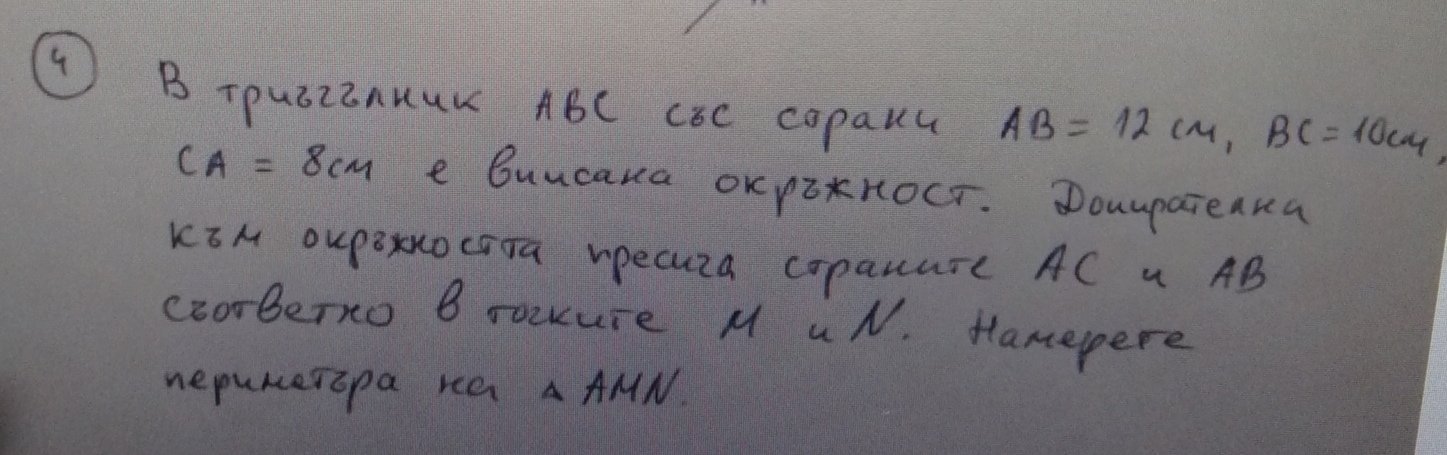 4
В триъгълник ABC със страни AB = 12 см, BC = 10см,
CA = 8см е вписана окръжност. Допирателна
към окръжността пресича страните AC и AB
съответно в точките M и N. Намерете
периметъра на △ AMN.